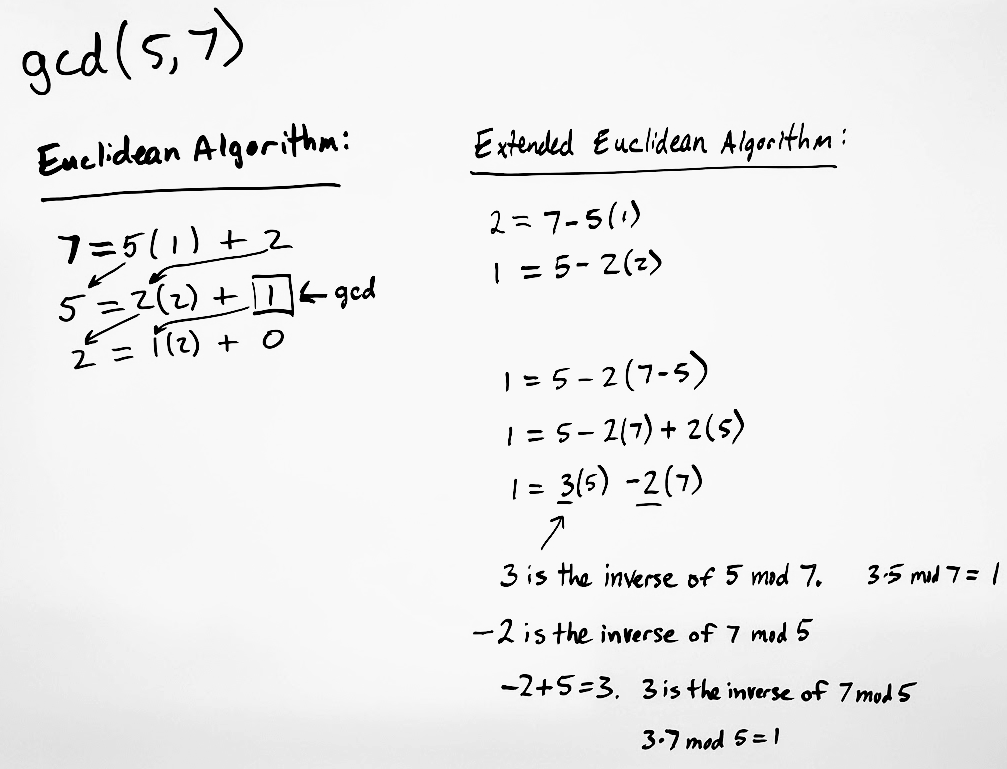 gcd(5,7)
Euclidean Algorithm:
7=5(1) + 2
5 = 2(2) + 1 ← gcd
2 = 1(2) + 0
Extended Euclidean Algorithm:
2 = 7-5(1)
1 = 5-2(2)
1 = 5-2(7-5)
1 = 5-2(7)+2(5)
1 = 3(5) -2(7)
3 is the inverse of 5 mod 7. 3·5 mod 7 = 1
-2 is the inverse of 7 mod 5
-2+5=3. 3 is the inverse of 7 mod 5
3·7 mod 5=1